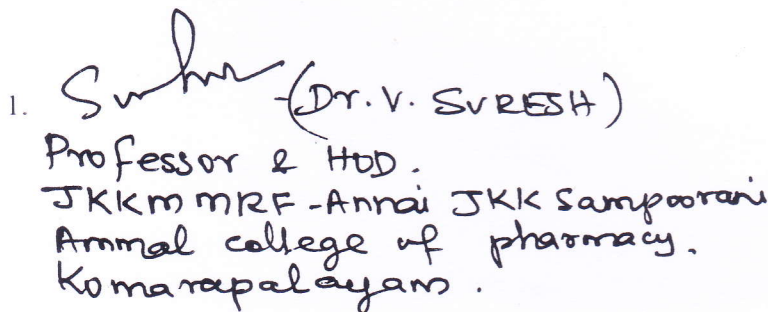 1. Suresh (Dr. V. SURESH)
Professor & HOD.
JKKMMRF-Annai JKK Sampoorani
Ammal college of pharmacy.
Komarapalayam.